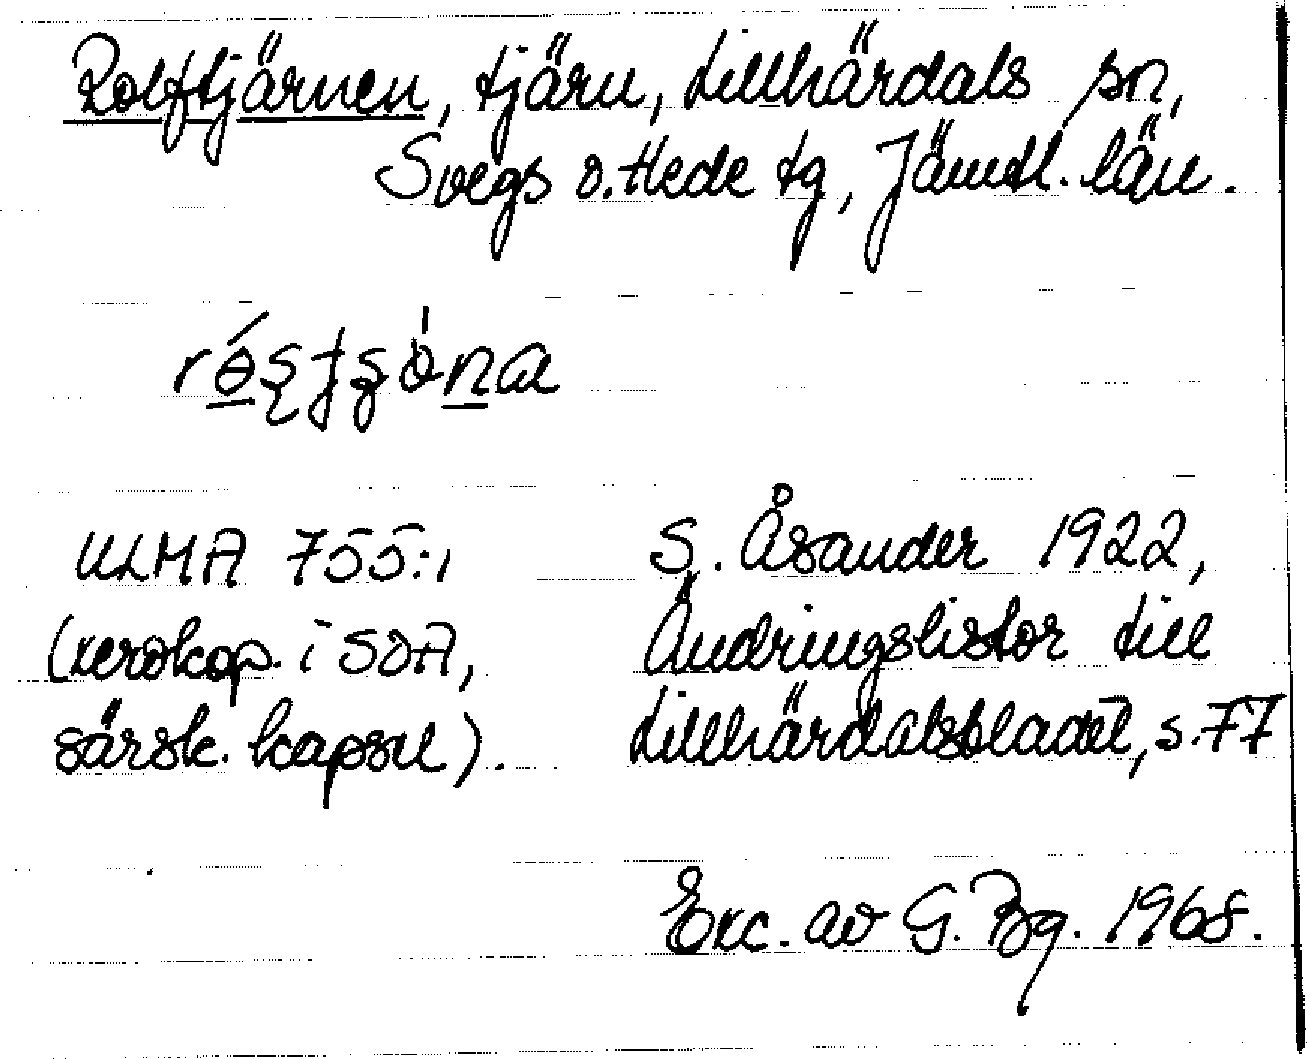 Rolftjärnen, tjärn, Lillhärdals sn,
Svegs o. Hede tg, Jämtl. län.
ULMA 755:1
(xerokop. i SOA,
särsk. kapsel).
S. Åsander 1922,
Ändringslistor till
Lillhärdalsbladet, s. 77
Exc. av G. Bg. 1968.